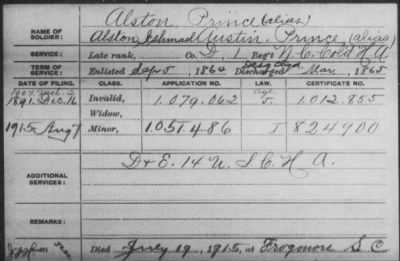 Alston, Prince (alias)
NAME OF SOLDIER:
Alston, Ishmael Austin, Prince (alias)
SERVICE:
Late rank, Co. D, 1 Reg't N.C. Cold H.A.
TERM OF SERVICE:
Enlisted Sep 5, 1864 Discharged Mar 1865
DATE OF FILING.
CLASS.
APPLICATION NO.
LAW.
CERTIFICATE NO.
1891. Dec. 16
Invalid,
1.079.062
J.
1.012.855
Widow,
1915 Aug 7
Minor,
1.051.486
J
824900
ADDITIONAL SERVICES:
D+E. 14 U.S.C.H.A.
REMARKS:
Died July 19, 1915, at Frogmore S C